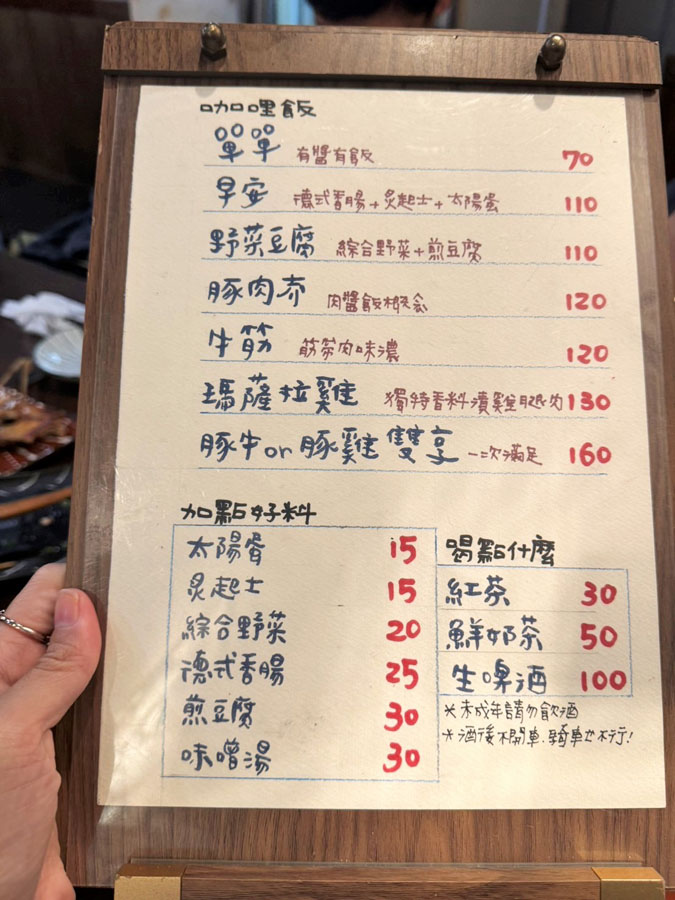 咖哩飯
單單 有醬有飯 70
早安 德式香腸+炙起士+太陽蛋 110
野菜豆腐 綜合野菜+煎豆腐 110
豚肉夯 肉醬飯概念 120
牛筋 筋帶肉味濃 120
瑪薩拉雞 獨特香料漬雞腿肉 130
豚牛or豚雞雙享 一次滿足 160
加點好料
太陽蛋 15
炙起士 15
綜合野菜 20
德式香腸 25
煎豆腐 30
味噌湯 30
喝點什麼
紅茶 30
鮮奶茶 50
生啤酒 100
*未成年請勿飲酒
*酒後不開車.騎車也不行!